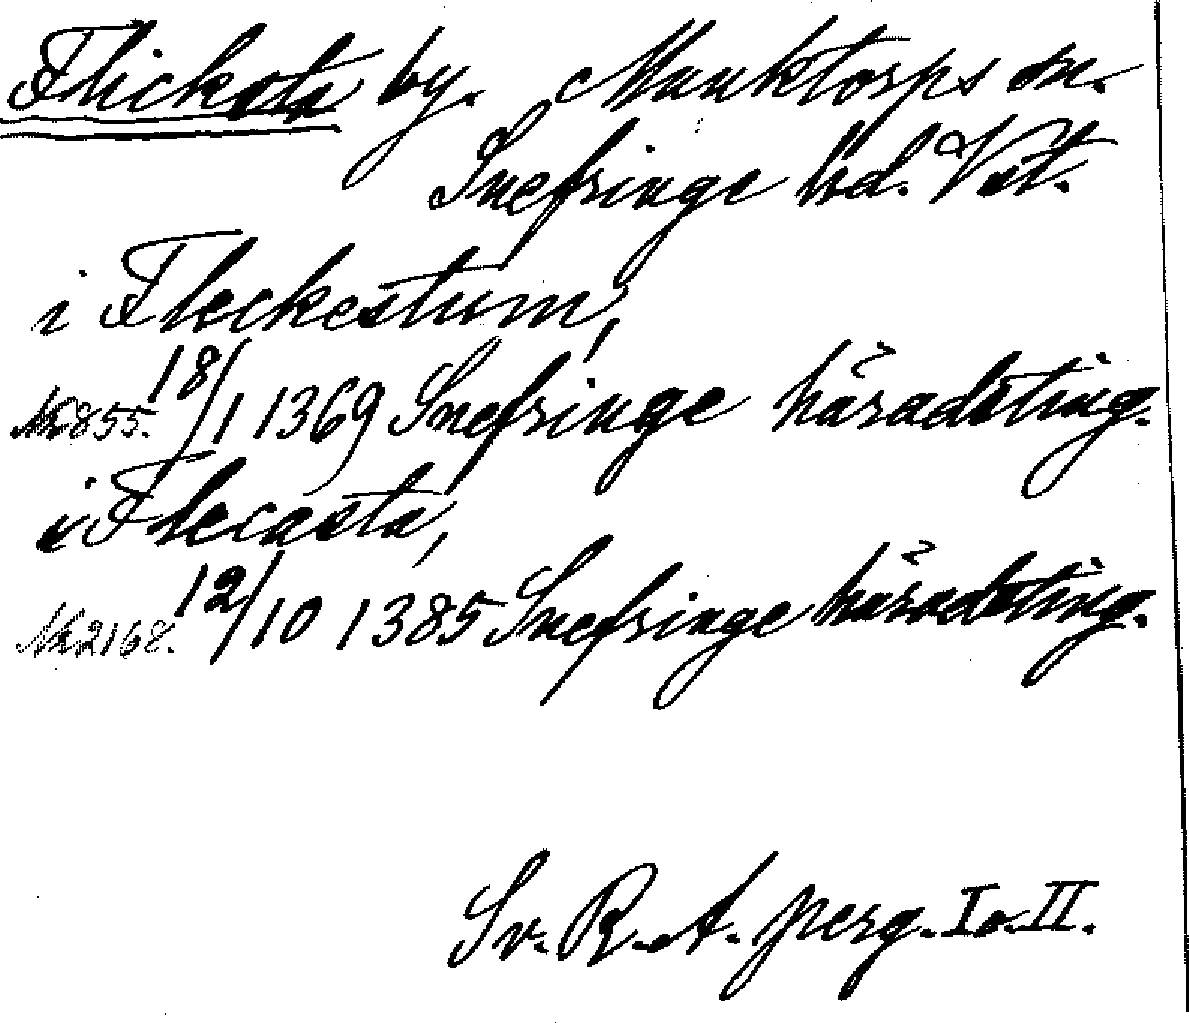 Flicksta by. Munktorps sn.
Snefringe hd. Vstl.
i Fleckestum,
No 855. 18/1 1369 Snefringe häradsting.
i Flecasta,
No 2168. 12/10 1385 Snefringe häradsting.
Sv. R. A. perg. I o. II.